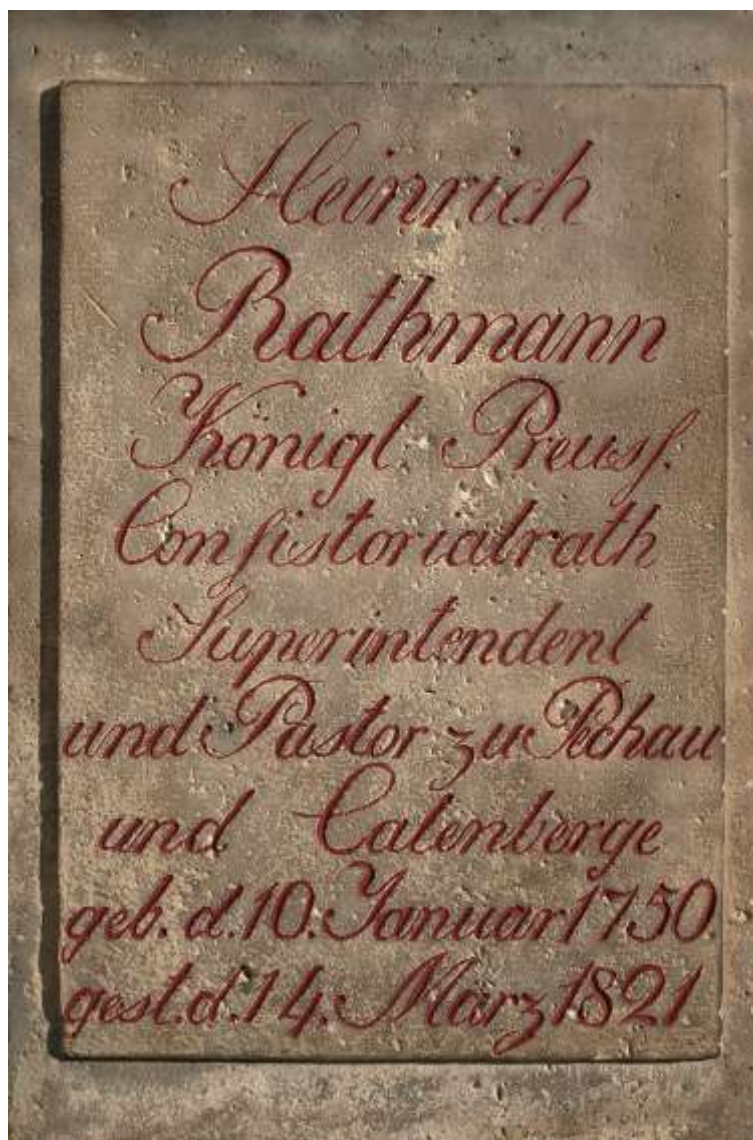 Heinrich
Rathmann
Königl Preusſ.
Conſistorialrath
Superintendent
und Pastor zu Pechau
und Calenberge
geb. d. 10. Januar 1750.
gest. d. 14. März 1821